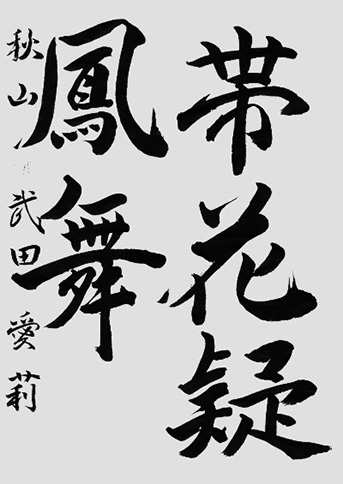 帯花疑
鳳舞
秋山 武田愛莉